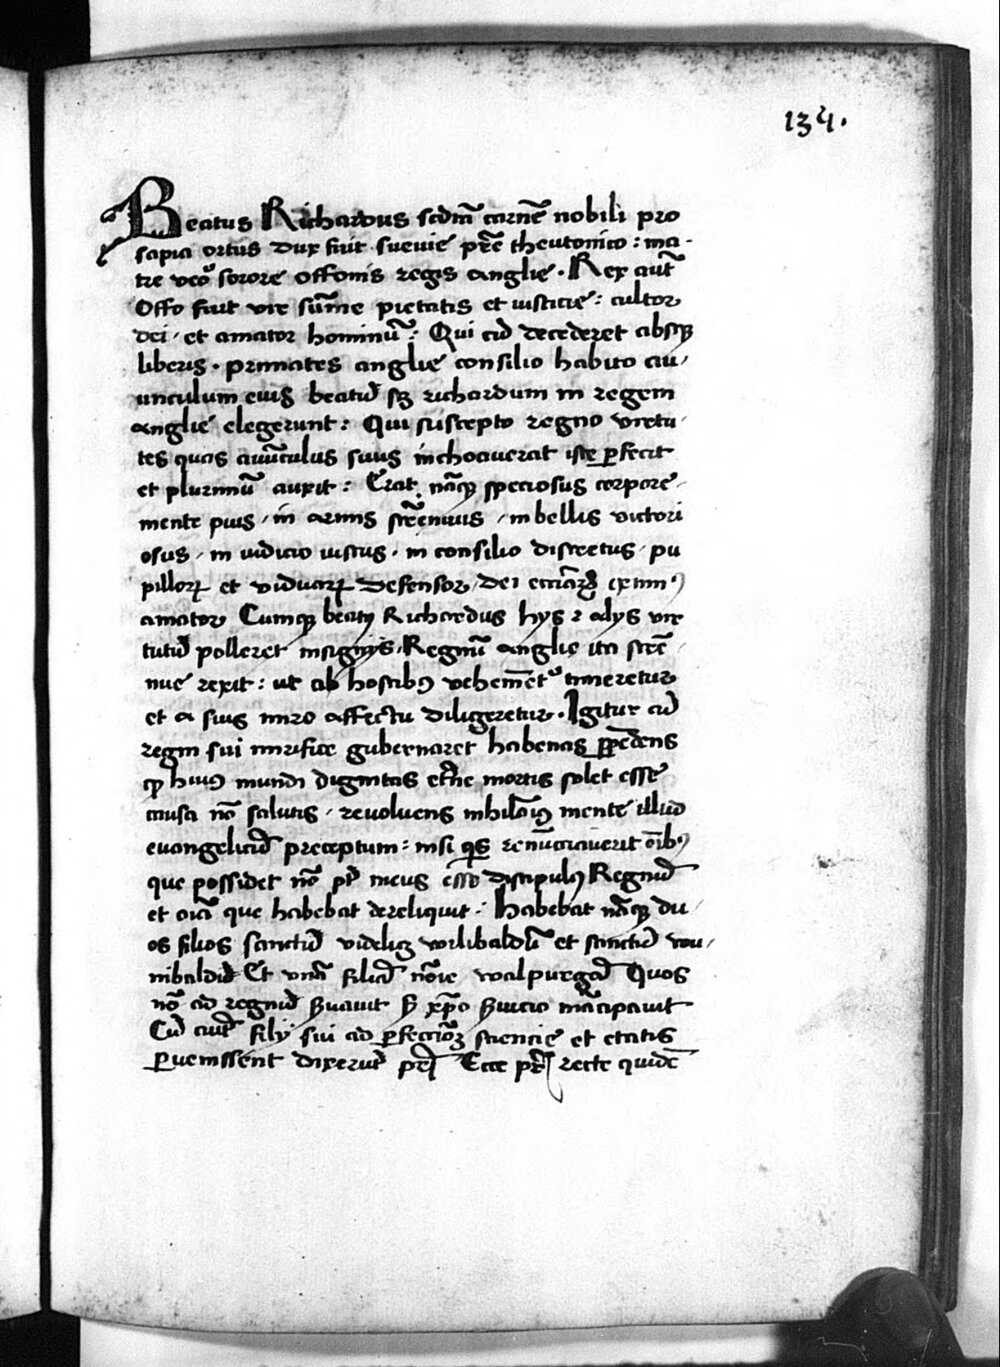 134.
Beatus Richardus scdm̄ carnē nobili pro
sapia ortus dux fuit suevie pr̄e theutonico : ma-
tre vero sorore offonis regis anglie . Rex aut̄
Offo fuit vir sūme pietatis et iusticie : cultor
dei . et amator hominū : Qui cū decederet absqꝫ
liberis . primates anglie consilio habito au/
unculum eiꝰ beatū sꝫ richardum in regem
anglie elegerunt : Qui suscepto regno virtu
tes quas avūculus suus inchoauerat iste ꝑfecit
et plurimū auxit : Erat nāqꝫ speciosus corpore
mente pius / in armis strēnuus / in bellis victori
osus / in iudicio iustus . in consilio discretus / pu
pilloꝝ et viduaꝝ defensor / dei eccīaꝝ eximiꝰ
amator Cumqꝫ beatꝰ Richardus hys ⁊ alys vir
tutū polleret insignys . Regnū anglie ita strē
nue rexit : ut ab hostibꝰ vehemēt᷒ timeretur
et a suis miro affectu diligeretur . Igitur cū
regni sui mirifice gubernaret habenas ꝑpēdens
ꝙ huiꝰ mundi dignitas et̄ne mortis solet esse
causa nō salutis . revoluens nihilōīꝰ mente illud
evangelicū preceptum : nisi qͥs renūciaverit oībꝰ
que possidet nō pt̄ meus esse discipulꝰ Regnū
et oīa que habebat dereliquit : Habebat nāqꝫ du
os filios sanctū videlicꝫ wilibaldū et sanctū wu/
nibaldū Et vnā filiā nōīe walpurgā Quos
nō ad regnū ẜvauit ẜ xp̄o ẜuicio mācipauit
Cū aut̄ filij sui ad ꝑfectiōꝫ sciencie et etatis
ꝑuenissent dixerūt pr̄i Ecce pr̄ recte quidē